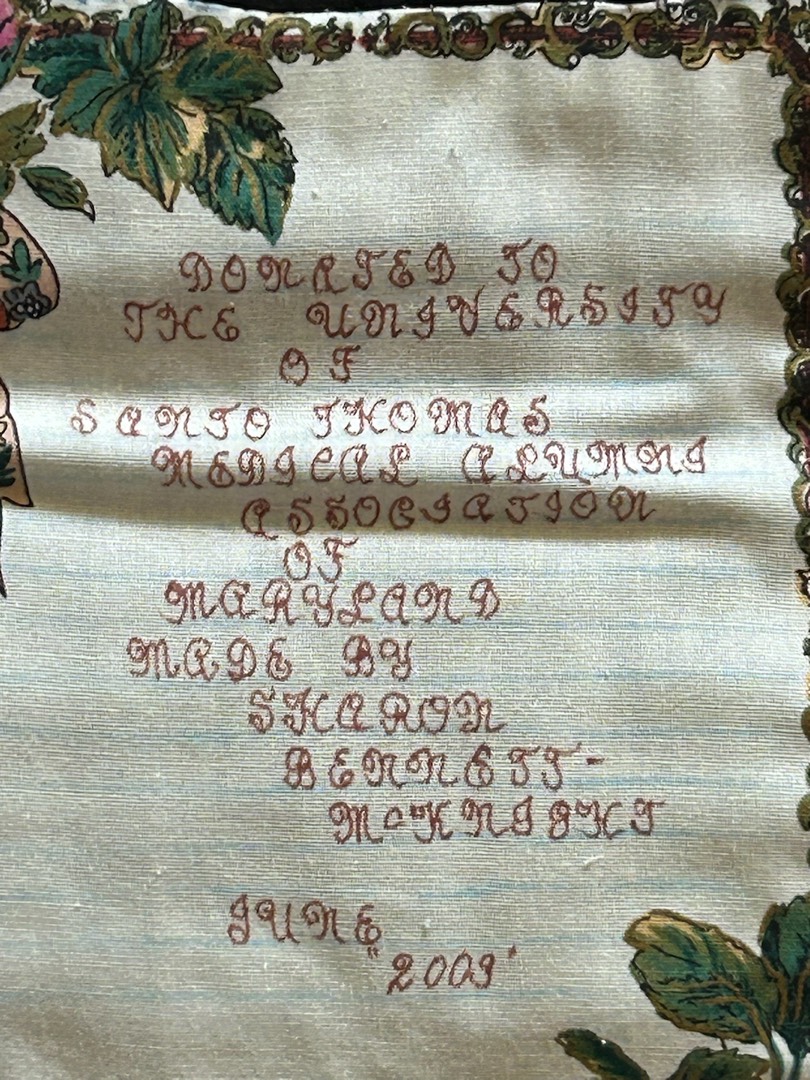 DONATED TO
THE UNIVERSITY
OF
SANTO THOMAS
MEDICAL ALUMNI
ASSOCIATION
OF
MARYLAND
MADE BY
SHARON
BENNETT-
McKNIGHT
JUNE
"2009"